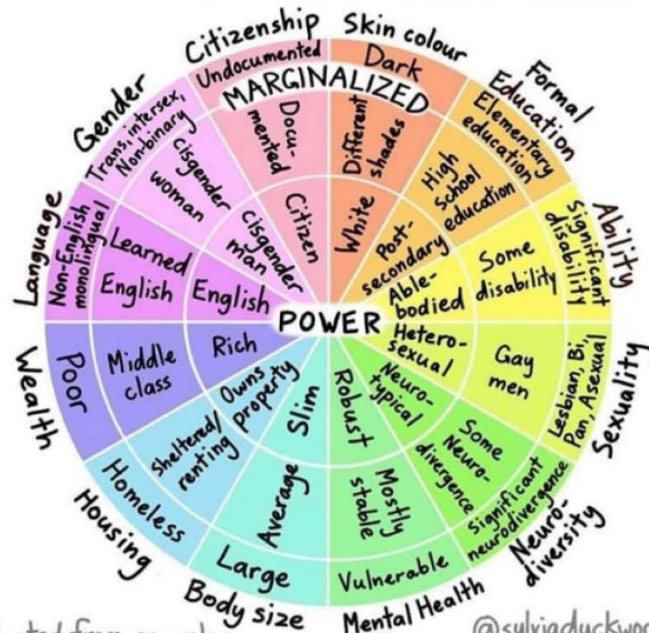 Citizenship
Undocumented
Docu-
mented
Citizen
Skin colour
Dark
Different
shades
White
Formal
Education
Elementary
education
High
School
education
Post-
secondary
Ability
Significant
disability
Some
disability
Able-
bodied
Sexuality
Lesbian, Bi,
Pan, Asexual
Gay
men
Hetero-
sexual
Neuro-
diversity
Significant
neurodivergence
Some
Neuro-
divergence
Neuro-
typical
Mental Health
Vulnerable
Mostly
stable
Robust
Body size
Large
Average
Slim
Housing
Homeless
Sheltered/
renting
Owns
property
Wealth
Poor
Middle
class
Rich
Language
Non-English
monolingual
Learned
English
English
Gender
Trans, intersex,
Non-binary
Cisgender
woman
cisgender
man
MARGINALIZED
POWER
@sylviaduckwo